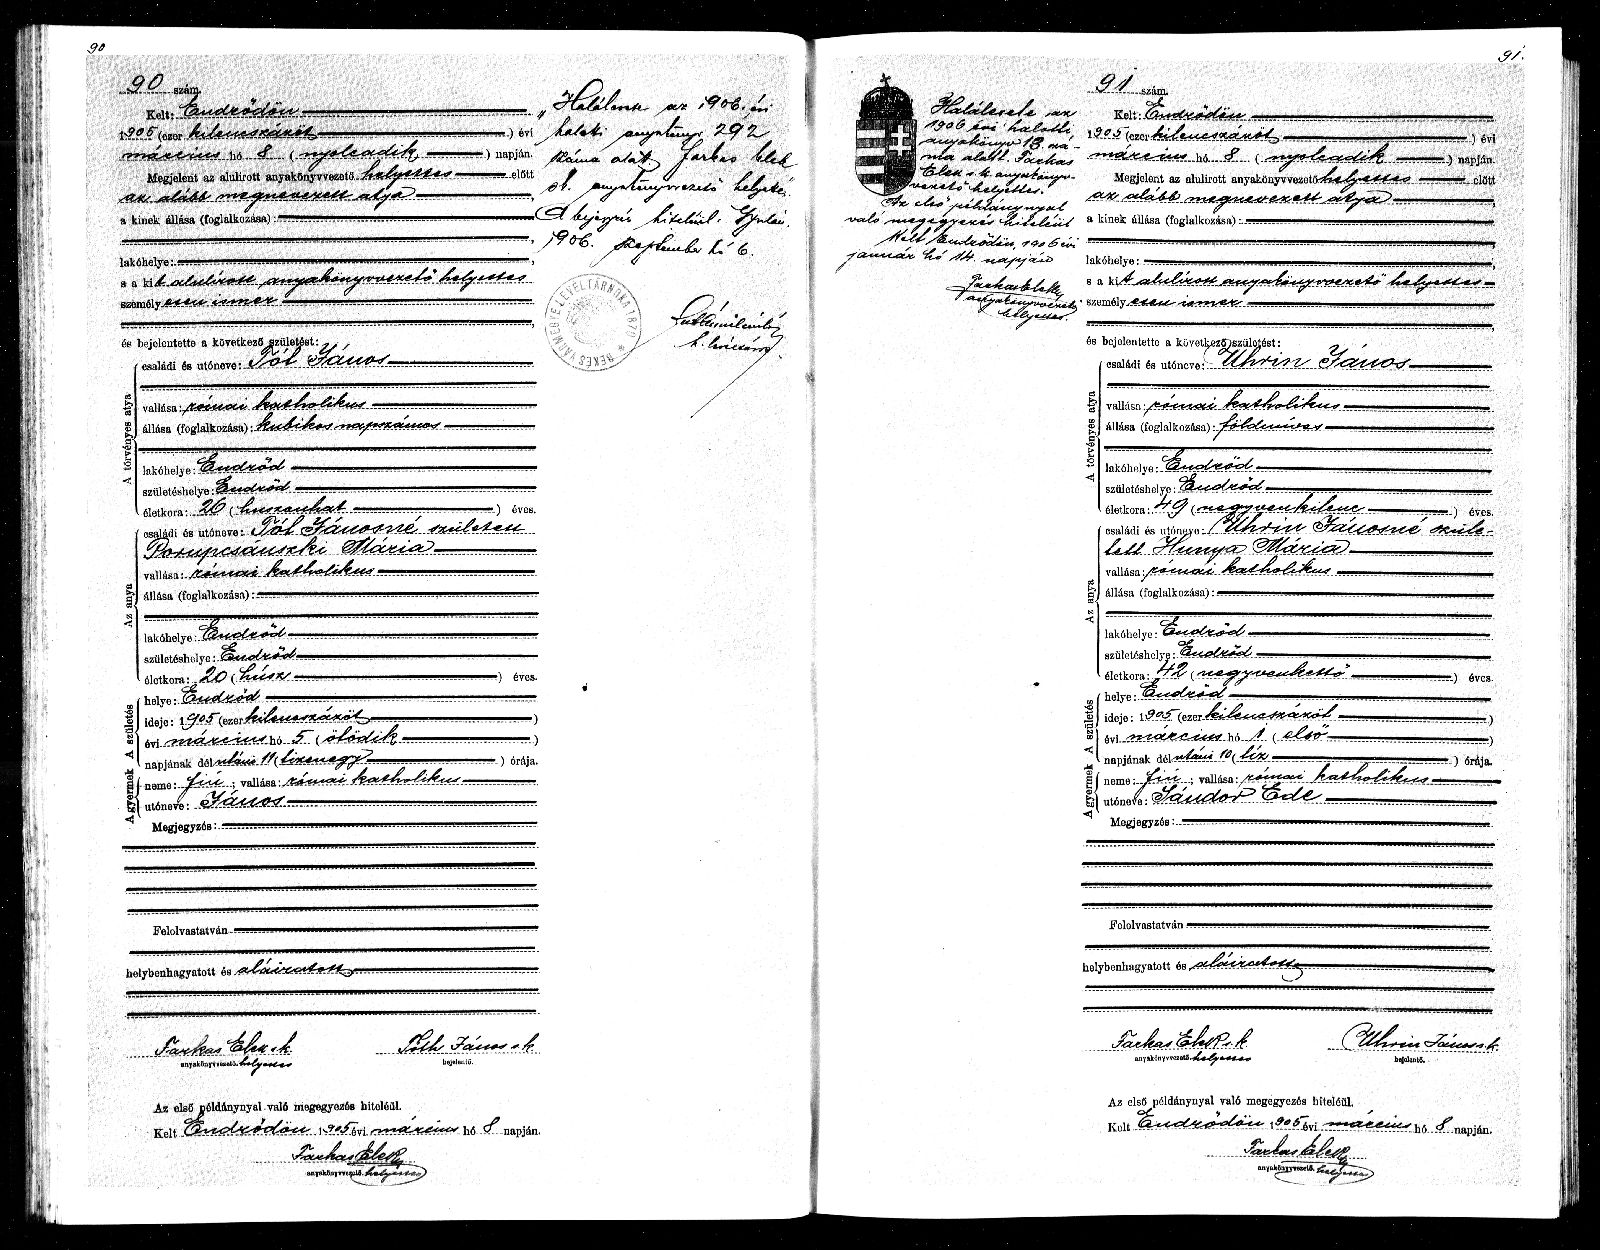 90
90 szám.
Kelt: Endrődön
1905 (ezer kilencszázöt) évi
március hó 8 (nyolcadik) napján.
Megjelent az alulirott anyakönyvvezető helyettes előtt
az alább megnevezett atya
a kinek állása (foglalkozása):
lakóhelye:
s a kit alulírott anyakönyvvezető helyettes
személyesen ismer
és bejelentette a következő születést:
A törvényes atya
családi és utóneve: Tót János
vallása: római katholikus
állása (foglalkozása): kubikos napszámos
lakóhelye: Endrőd
születéshelye: Endrőd
életkora: 26 (huszonhat) éves.
Az anya
családi és utóneve: Tót Jánosné született
Porupcsánszki Mária
vallása: római katholikus
állása (foglalkozása):
lakóhelye: Endrőd
születéshelye: Endrőd
életkora: 20 (húsz) éves.
A születés
helye: Endrőd
ideje: 1905 (ezer kilencszázöt)
évi március hó 5 (ötödik)
napjának délutáni 11 (tizenegy) órája.
A gyermek
neme: fiú; vallása: római katholikus
utóneve: János
Megjegyzés:
Felolvastatván
helybenhagyatott és aláiratott
Farkas Elek sk
anyakönyvvezető helyettes
Tóth János sk
bejelentő.
Az első példánynyal való megegyezés hiteléül.
Kelt Endrődön 1905 évi március hó 8 napján.
Farkas Elek
anyakönyvvezető helyettes
„Halálozás az 1906. évi
halotti anyakönyv 292
száma alatt Farkas Elek
sk. anyakönyvvezető helyettes.
A bejegyzés hiteléül. Gyulán,
1906. szeptember hó 6.
BÉKÉSVÁRMEGYE LEVÉLTÁRNOKA 187
91.
Halálesete az
1906 évi halotti
anyakönyv 13. szá-
ma alatt. Farkas
Elek s.k. anyakönyv-
vezető helyettes.
Az első példánynyal
való megegyezés hiteléül
Kelt Endrődön, 1906 évi
január hó 14. napján
Farkas Elek
anyakönyvvezető
helyettes.
91 szám.
Kelt: Endrődön
1905 (ezer kilencszázöt) évi
március hó 8 (nyolcadik) napján.
Megjelent az alulirott anyakönyvvezető helyettes előtt
az alább megnevezett atya
a kinek állása (foglalkozása):
lakóhelye:
s a kit alulírott anyakönyvvezető helyettes
személyesen ismer
és bejelentette a következő születést:
A törvényes atya
családi és utóneve: Uhrin János
vallása: római katholikus
állása (foglalkozása): földmives
lakóhelye: Endrőd
születéshelye: Endrőd
életkora: 49 (negyvenkilenc) éves.
Az anya
családi és utóneve: Uhrin Jánosné szüle-
tett Hunya Mária
vallása: római katholikus
állása (foglalkozása):
lakóhelye: Endrőd
születéshelye: Endrőd
életkora: 42 (negyvenkettő) éves.
A születés
helye: Endrőd
ideje: 1905 (ezer kilencszázöt)
évi március hó 1 (első)
napjának délutáni 10 (tíz) órája.
A gyermek
neme: fiú; vallása: római katholikus
utóneve: Sándor Ede
Megjegyzés:
Felolvastatván
helybenhagyatott és aláiratott
Farkas Elek s.k
anyakönyvvezető helyettes
Uhrin János s.k.
bejelentő.
Az első példánynyal való megegyezés hiteléül.
Kelt Endrődön 1905 évi március hó 8 napján.
Farkas Elek
anyakönyvvezető helyettes